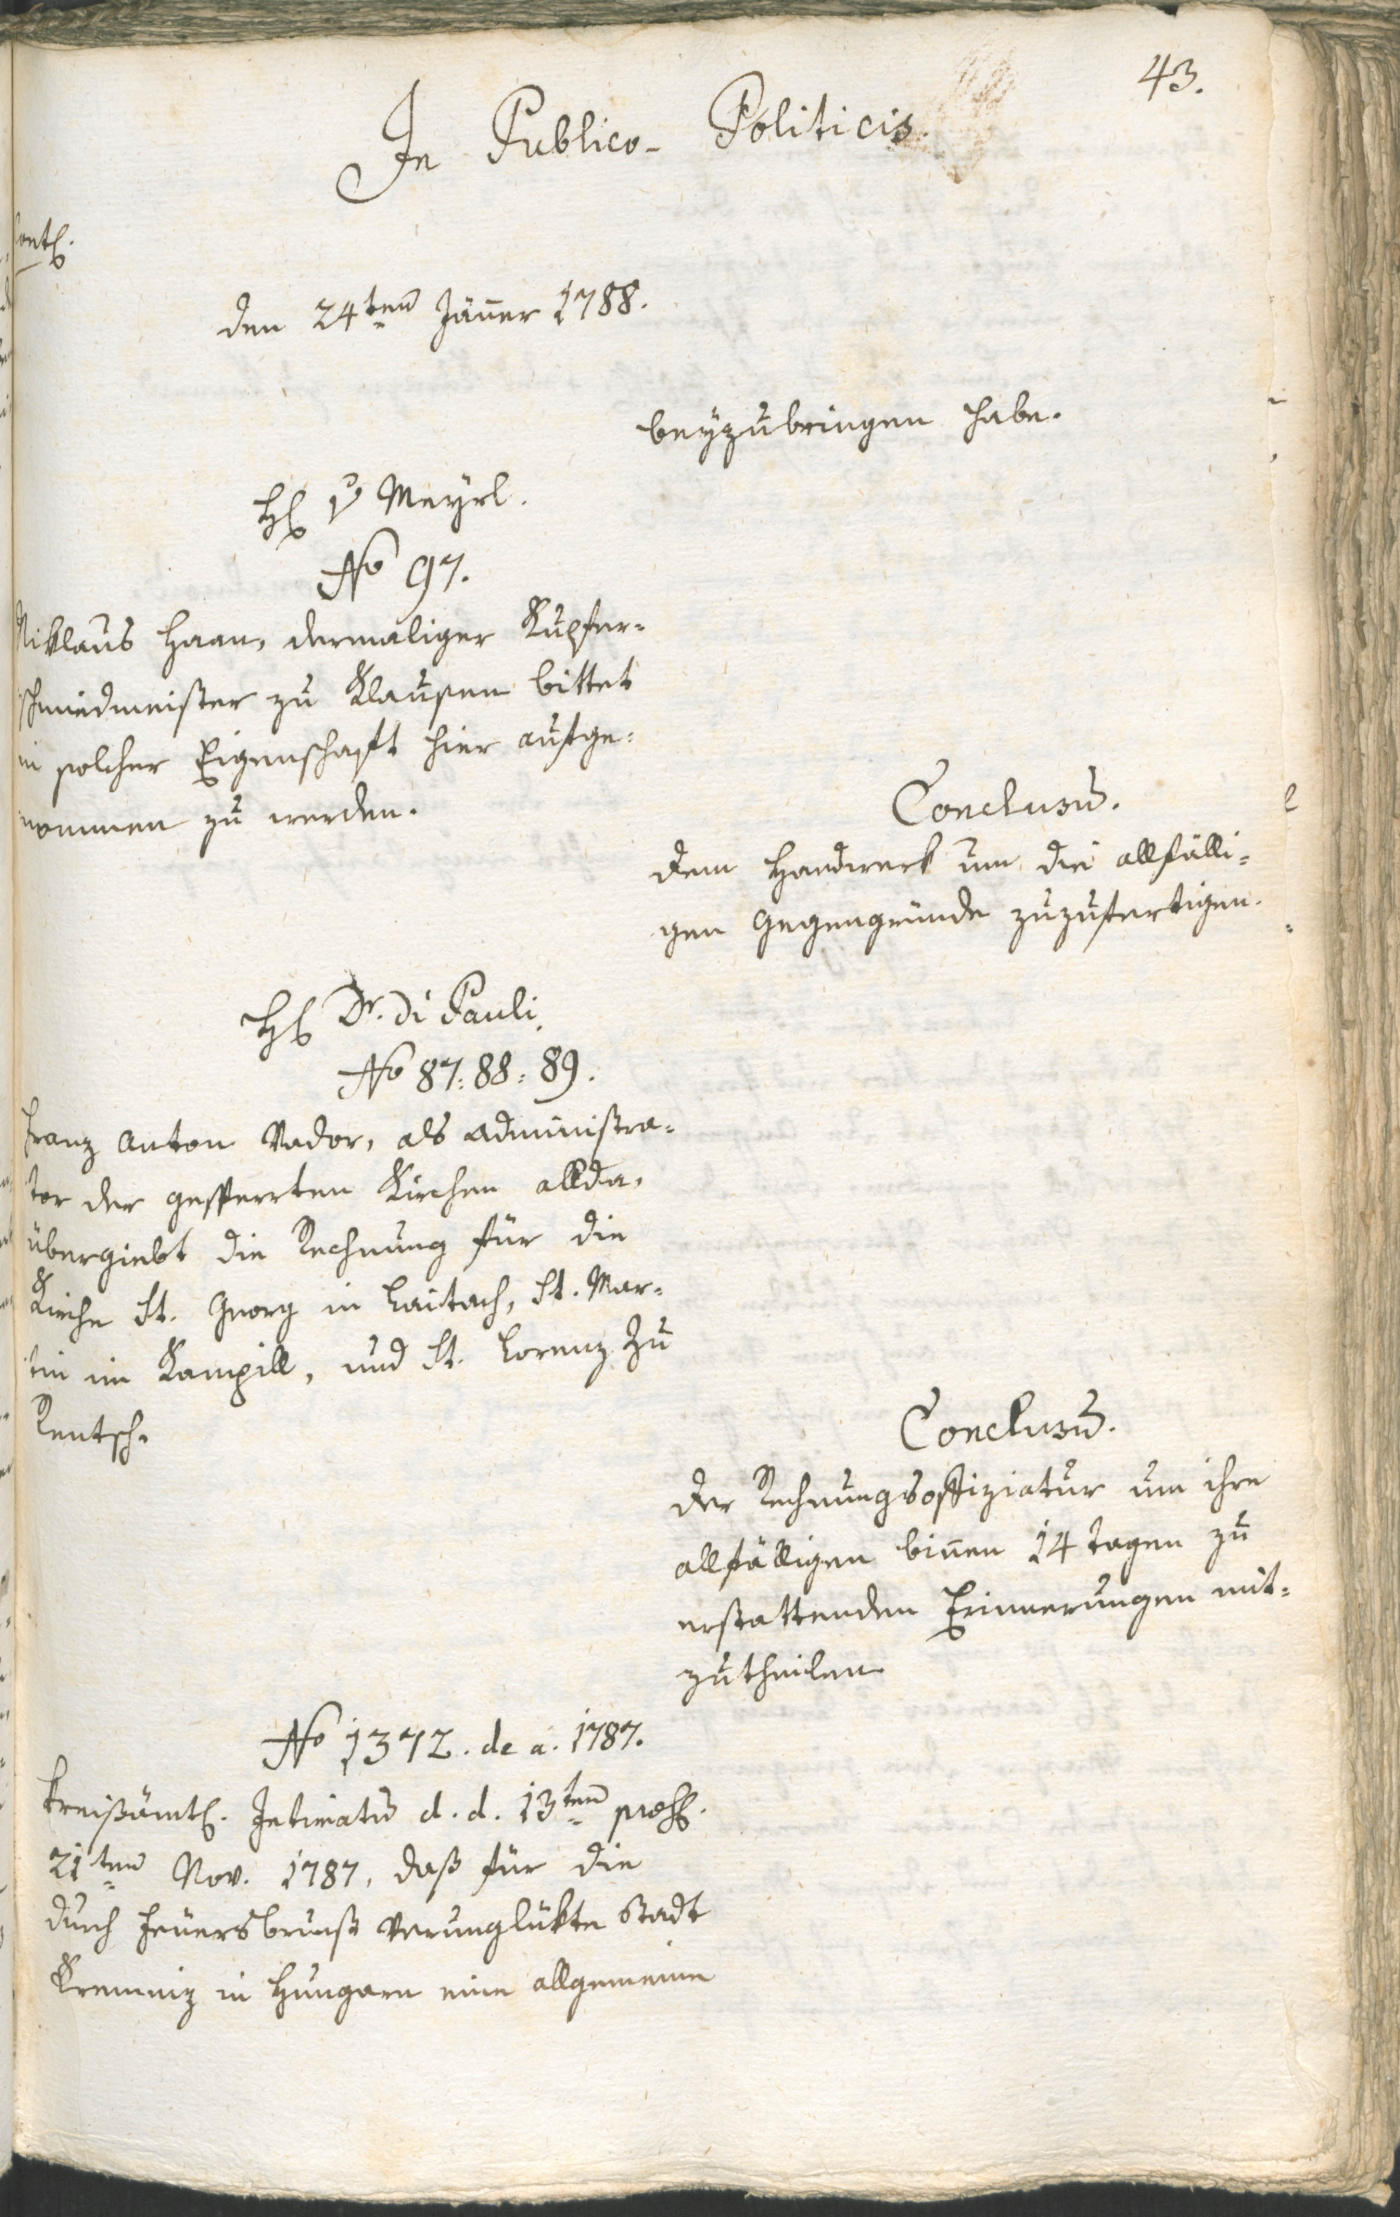 43.
In Publico-Politicis.
den 24ten Jäner 1788.
beyzubringen habe.
H v Meyrl.
No 97.
Niklaus Haan, dermaliger Kupfer-
schmiedmeister zu Klausen bittet
in solcher Eigenschaft hier aufge-
nommen zu werden.
Conclusum.
dem Handwerk um die allfälli-
gen Gegengründe zuzufertigen.
H Dr. Di Pauli,
No 87: 88: 89.
Franz Anton Vador, als administra-
tor der gesperrten Kirchen allda,
übergiebt die Rechnung für die
Kirche St. Georg in Laitach, St. Mar-
tin im Kampill, und St. Lorenz zu
Rentsch.
Conclusum.
der Rechnungsoffiziatur um ihre
allfälligen binen 14 tagen zu
erstattenden Erinnerungen mit-
zutheilen
No 1372. de a. 1787.
Kreisämtl. Intimatum d. d. 13ten præs.
21ten Nov. 1787, daß für die
durch Feuersbrunst verunglükte Stadt
Kremniz in Hungarn eine allgemeine